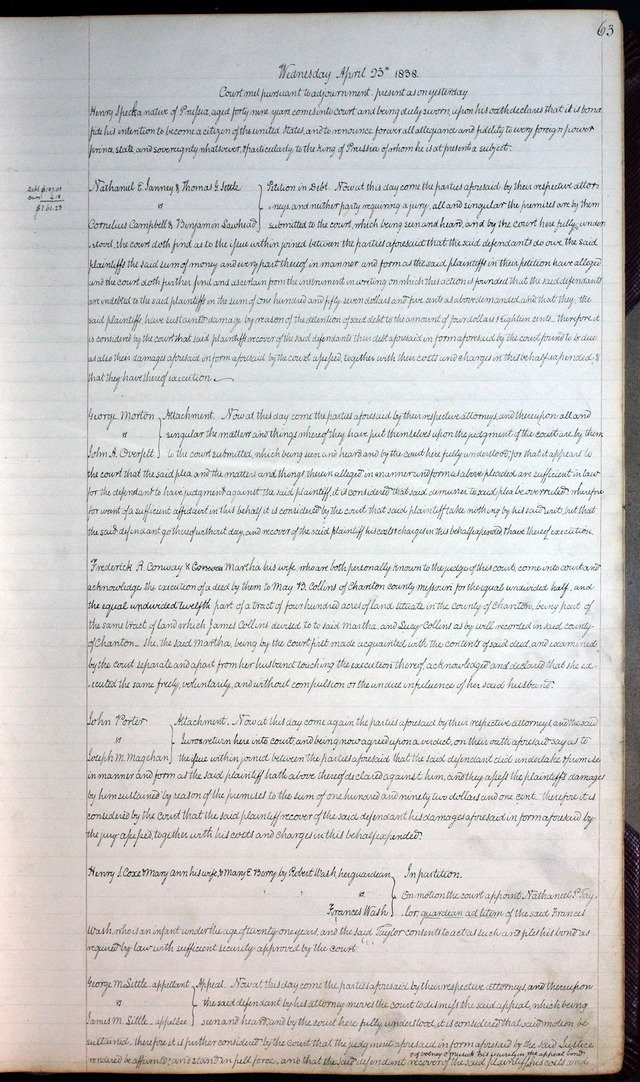 63
Wednesday April 25th 1838.
Court met pursuant to adjournment. present as on yesterday
Henry Speck a native of Prussia, aged forty nine years comes into court and being duly sworn, upon his oath declares that it is bona
fide his intention to become a citizen of the United States, and to renounce forever all allegiance and fidelity to every foreign power
prince, state and sovereignty whatsoever, & particularly to the King of Prussia of whom he is at present a subject.
Debt $157.05
Dam 4.18
$161.23
Nathaniel E. Janney & Thomas G. Settle Petition in Debt. Now at this day come the parties aforesaid by their respective attor-
vs neys, and neither party requiring a jury, all and singular the premises are by them
Cornelius Campbell & Benjamin Sawhead submitted to the court, which being seen and heard, and by the court here fully under
stood, the court doth find as to the issue within joined between the parties aforesaid that the said defendants do owe the said
plaintiffs the said sum of money and every part thereof in manner and form as the said plaintiffs in their petition have alleged
and the court doth further find and ascertain from the instrument in writing on which this action is founded that the said defendants
are indebted to the said plaintiffs in the sum of one hundred and fifty seven dollars and five cents as above demanded and that they, the
said plaintiffs, have sustained damage, by reason of the detention of said debt to the amount of four dollars & eighteen cents. therefore it
is considered by the court that said plaintiffs recover of the said defendants their debt aforesaid in form aforesaid by the court found to be due
as also their damages aforesaid in form aforesaid by the court assessed, together with their costs and charges in this behalf expended, &
that they have thereof execution.
George Morton Attachment. Now at this day come the parties aforesaid by their respective attorneys, and thereupon all and
vs singular the matters and things whereof they have put themselves upon the judgment of the court are by them
John A. Overfelt to the court submitted, which being seen and heard and by the court here fully understood, for that it appears to
the court that the said plea and the matters and things therein alleged in manner and form as above pleaded are sufficient in law
for the defendant to have judgment against the said plaintiff, it is considered that said demurrer to said plea be overruled. wherefore
for want of a sufficient affidavit in this behalf it is considered by the court that said plaintiff take nothing by his said writ, but that
the said defendant go thereof without day, and recover of the said plaintiff his costs & charges in this behalf expended & have thereof execution.
Frederick R. Conway & Martha his wife, who are both personally known to the judge of this court, come into court and
acknowledge the execution of a deed by them to May B. Collins of Chariton county missouri for the equal undivided half, and
the equal undivided twelfth part of a tract of four hundred acres of land situate in the county of Chariton, being part of
the same tract of land which James Collins devised to to said Martha, and Lucy Collins as by will recorded in said county
of Chariton. She, the said Martha, being by the court first made acquainted with the contents of said deed, and examined
by the court separate and apart from her husband touching the execution thereof, acknowledged and declared that she ex-
ecuted the same freely, voluntarily, and without compulsion or the undue influence of her said husband.
John Porter Attachment. Now at this day come again the parties aforesaid by their respective attorneys, and the said
vs Jurors return here into court, and being now agreed upon a verdict, on their oath aforesaid say as to
Joseph M. Magehan the issue within joined between the parties aforesaid that the said defendant did undertake & promise
in manner and form as the said plaintiff hath above thereof declared against him, and they assess the plaintiff's damages
by him sustained by reason of the premises to the sum of one hundred and ninety two dollars and one cent. therefore it is
considered by the Court that the said plaintiff recover of the said defendant his damages aforesaid in form aforesaid by
the jury assessed, together with his costs and charges in this behalf expended.
Henry S. Coxe & Mary ann his wife, & Mary E. Berry by Robert Wash her guardian In partition.
vs On motion the court appoint Nathaniel P. Tay-
Frances Wash lor, guardian ad litem of the said Frances
Wash, who is an infant under the age of twenty one years, and the said Taylor consents to act as such and files his bond as
required by law with sufficient security approved by the court.
George M. Settle appellant Appeal. Now at this day come the parties aforesaid by their respective attorneys, and thereupon
vs the said defendant by his attorney moves the court to dismiss the said appeal, which being
James M. Settle appellee seen and heard, and by the court here fully understood, it is considered that said motion be
sustained. therefore it is further considered by the Court that the judgment aforesaid in form aforesaid by the said Justice
rendered be affirmed and stand in full force, and that the said defendant recover of the said plaintiff, his costs and
his security in the appeal bond